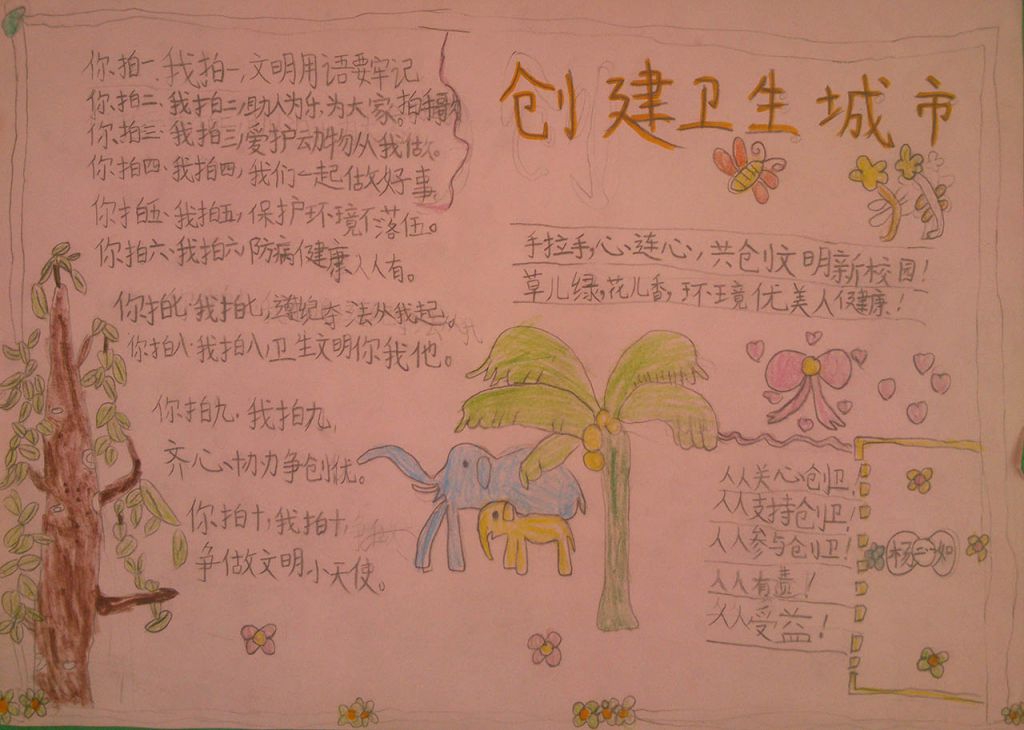 创建卫生城市
你拍一、我拍一,文明用语要牢记
你拍二、我拍二,助人为乐为大家。
你拍三、我拍三,爱护动物从我做。
你拍四、我拍四,我们一起做好事
你拍五、我拍五,保护环境不落伍。
你拍六、我拍六,防病健康人人有。
你拍七、我拍七,遵纪守法从我起。
你拍八、我拍八,卫生文明你我他。
你拍九、我拍九,
齐心协力争创优。
你拍十,我拍十,
争做文明小天使。
手拉手,心连心,共创文明新校园!
草儿绿,花儿香,环境优美人健康!
人人关心创卫,
人人支持创卫!
人人参与创卫!
人人有责!
人人受益!